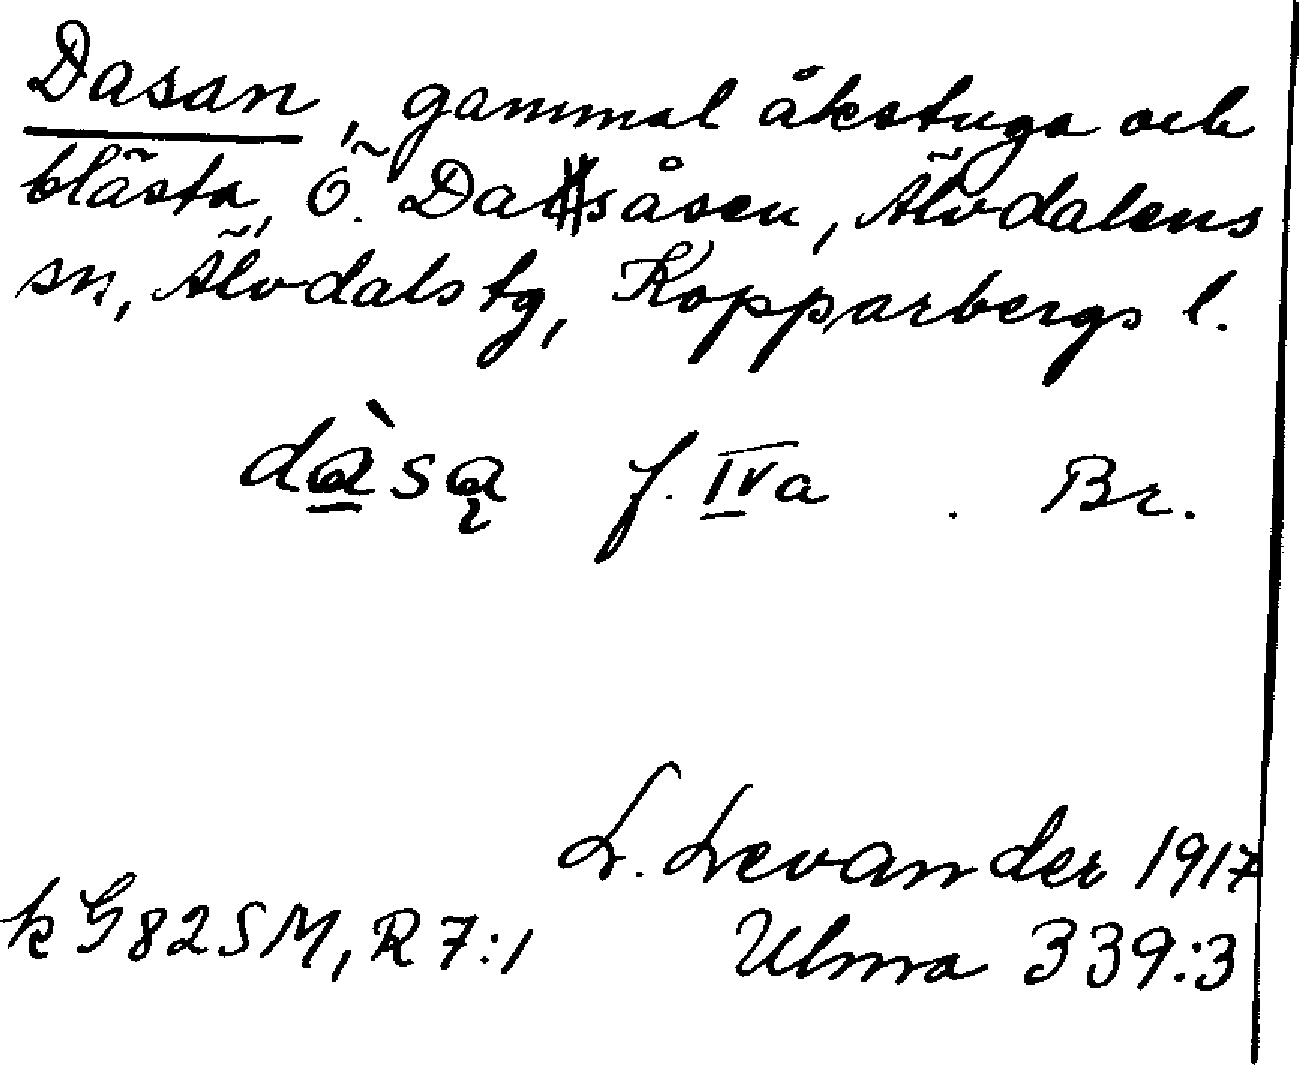 Dasan, gammal åkstuga och
blästa, Ö. Dasåsen, Älvdalens
sn, Älvdals tg, Kopparbergs l.
dàsą f. IVa . Br.
L. Levander 1917
k G 82 SM, R 7:1 Ulma 339:3